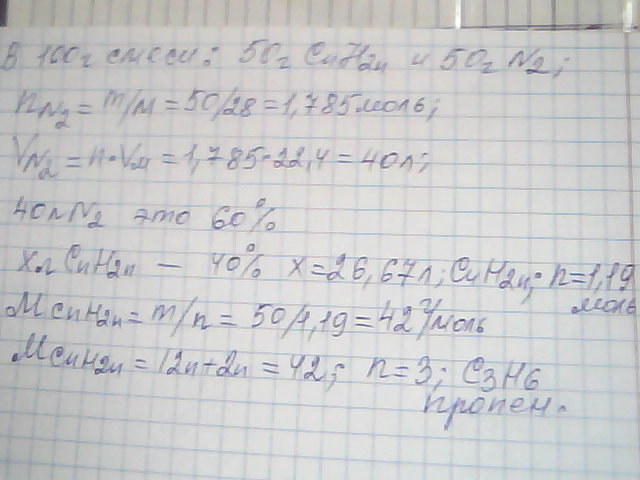 В 100г смеси: 50г CnH2n и 50г N2;
nN2 = m/M = 50/28 = 1,785 моль;
VN2 = n·Vм = 1,785·22,4 = 40л;
40л N2 это 60%
Xл CnH2n — 40% x = 26,67л; CnH2n; n = 1,19 моль
MCnH2n = m/n = 50/1,19 = 42 г/моль
MCnH2n = 12n+2n = 42; n = 3; C3H6
пропен.